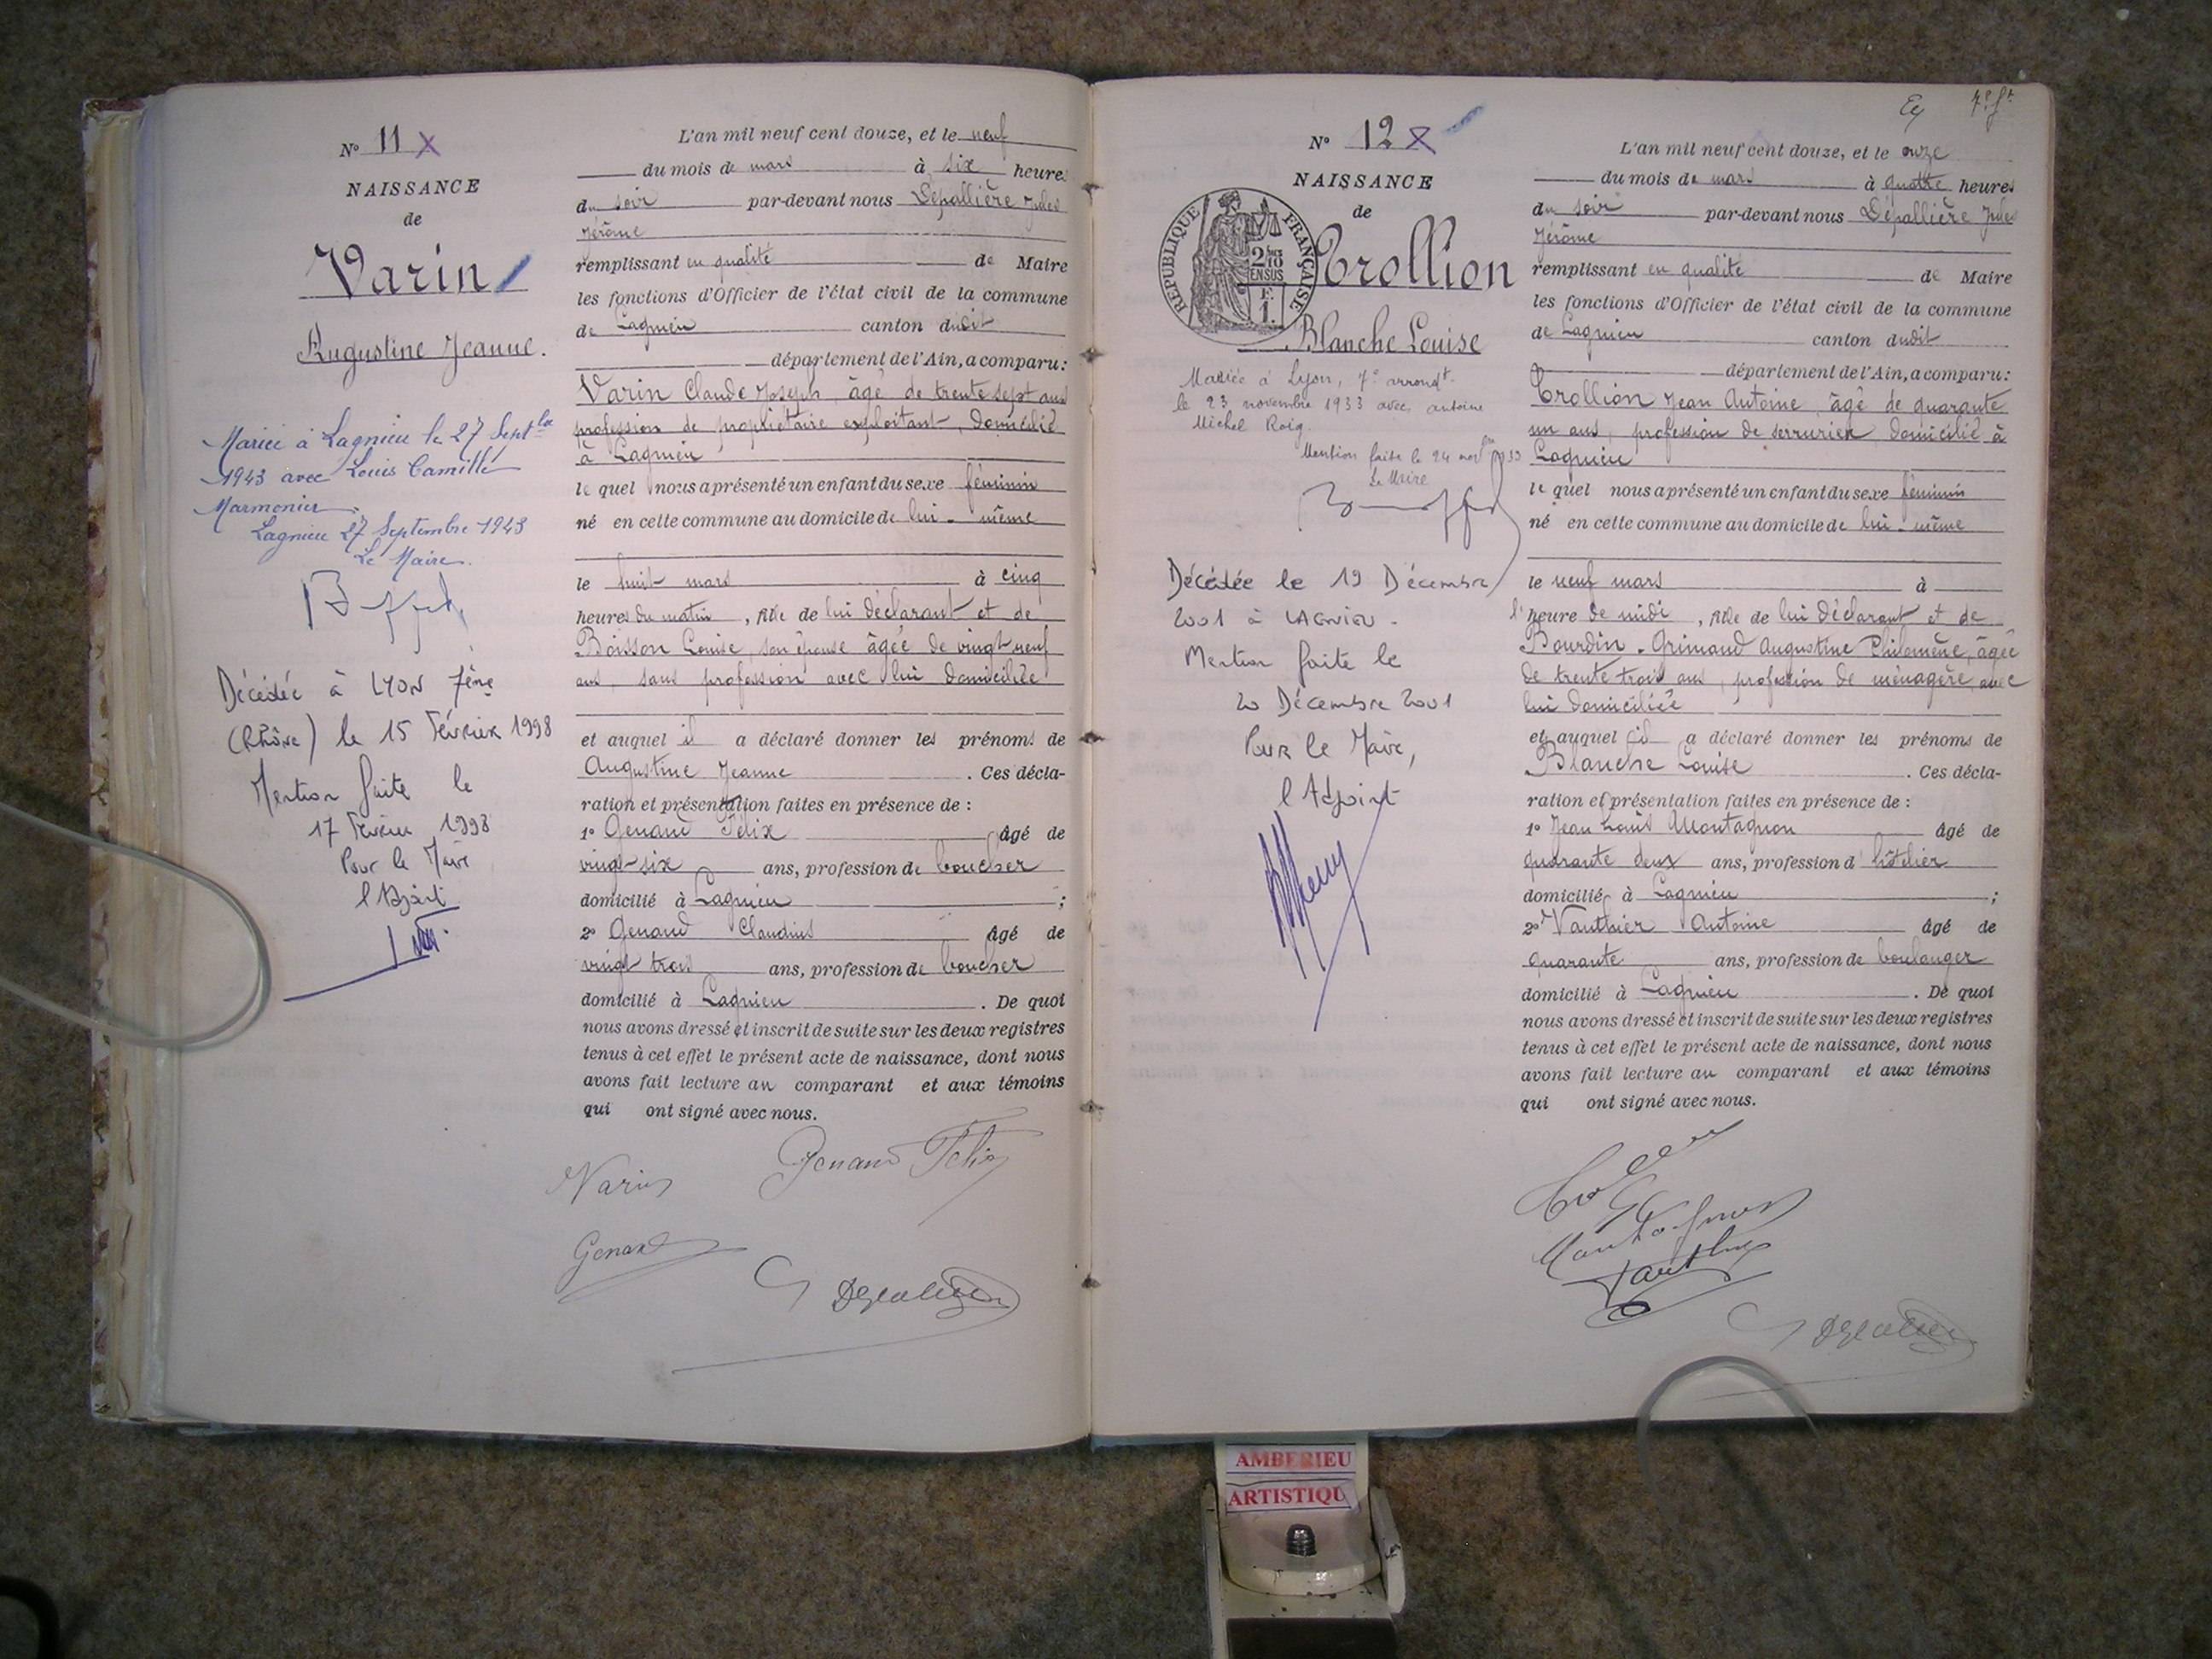 N° 11 X
NAISSANCE
de
Varin
Augustine Jeanne.
Mariée à Lagnieu le 27 Septbre
1943 avec Louis Camille
Marmonier.
Lagnieu 27 Septembre 1943
Le Maire.
Décédée à LYON 7ème
(Rhône) le 15 Février 1998
Mention faite le
17 Février 1998
Pour le Maire
l'Adjoint
L'an mil neuf cent douze, et le neuf
du mois de mars à six heures
du soir par-devant nous Dépallière Jules
Jérôme
remplissant en qualité de Maire
les fonctions d'Officier de l'état civil de la commune
de Lagnieu canton dudit
département de l'Ain, a comparu :
Varin Claude Joseph, âgé de trente sept ans
profession de propriétaire exploitant, domicilié
à Lagnieu
le quel nous a présenté un enfant du sexe féminin
né en cette commune au domicile de lui-même
le huit mars à cinq
heures du matin, fille de lui déclarant et de
Boisson Louise, son épouse âgée de vingt neuf
ans, sans profession avec lui domiciliée
et auquel il a déclaré donner les prénoms de
Augustine Jeanne. Ces décla-
ration et présentation faites en présence de :
1° Genand Félix âgé de
vingt-six ans, profession de boucher
domicilié à Lagnieu ;
2° Genand Claudius âgé de
vingt trois ans, profession de boucher
domicilié à Lagnieu. De quoi
nous avons dressé et inscrit de suite sur les deux registres
tenus à cet effet le présent acte de naissance, dont nous
avons fait lecture au comparant et aux témoins
qui ont signé avec nous.
Varin Genand Félix
Genand
N° 12 X
NAISSANCE
de
RÉPUBLIQUE FRANÇAISE
2/10
EN SUS
F.
1.
Trollion
Blanche Louise
Mariée à Lyon, 7e arrondt.
le 23 novembre 1933 avec Antoine
Michel Roig.
Mention faite le 24 novbre 1933
Le Maire
Décédée le 19 Décembre
2001 à LAGNIEU.
Mention faite le
20 Décembre 2001
Pour le Maire,
l'Adjoint
7e ft
L'an mil neuf cent douze, et le onze
du mois de mars à quatre heures
du soir par-devant nous Dépallière Jules
Jérôme
remplissant en qualité de Maire
les fonctions d'Officier de l'état civil de la commune
de Lagnieu canton dudit
département de l'Ain, a comparu :
Trollion Jean Antoine, âgé de quarante
un ans, profession de serrurier domicilié à
Lagnieu
le quel nous a présenté un enfant du sexe féminin
né en cette commune au domicile de lui-même
le neuf mars à
l'heure de midi, fille de lui déclarant et de
Bourdin-Grimaud Augustine Philomène, âgée
de trente trois ans, profession de ménagère, avec
lui domiciliée
et auquel il a déclaré donner les prénoms de
Blanche Louise. Ces décla-
ration et présentation faites en présence de :
1° Jean Louis Montagnon âgé de
quarante deux ans, profession d'hôtelier
domicilié à Lagnieu ;
2° Vauthier Antoine âgé de
quarante ans, profession de boulanger
domicilié à Lagnieu. De quoi
nous avons dressé et inscrit de suite sur les deux registres
tenus à cet effet le présent acte de naissance, dont nous
avons fait lecture au comparant et aux témoins
qui ont signé avec nous.
Montagnon
AMBERIEU
ARTISTIQU